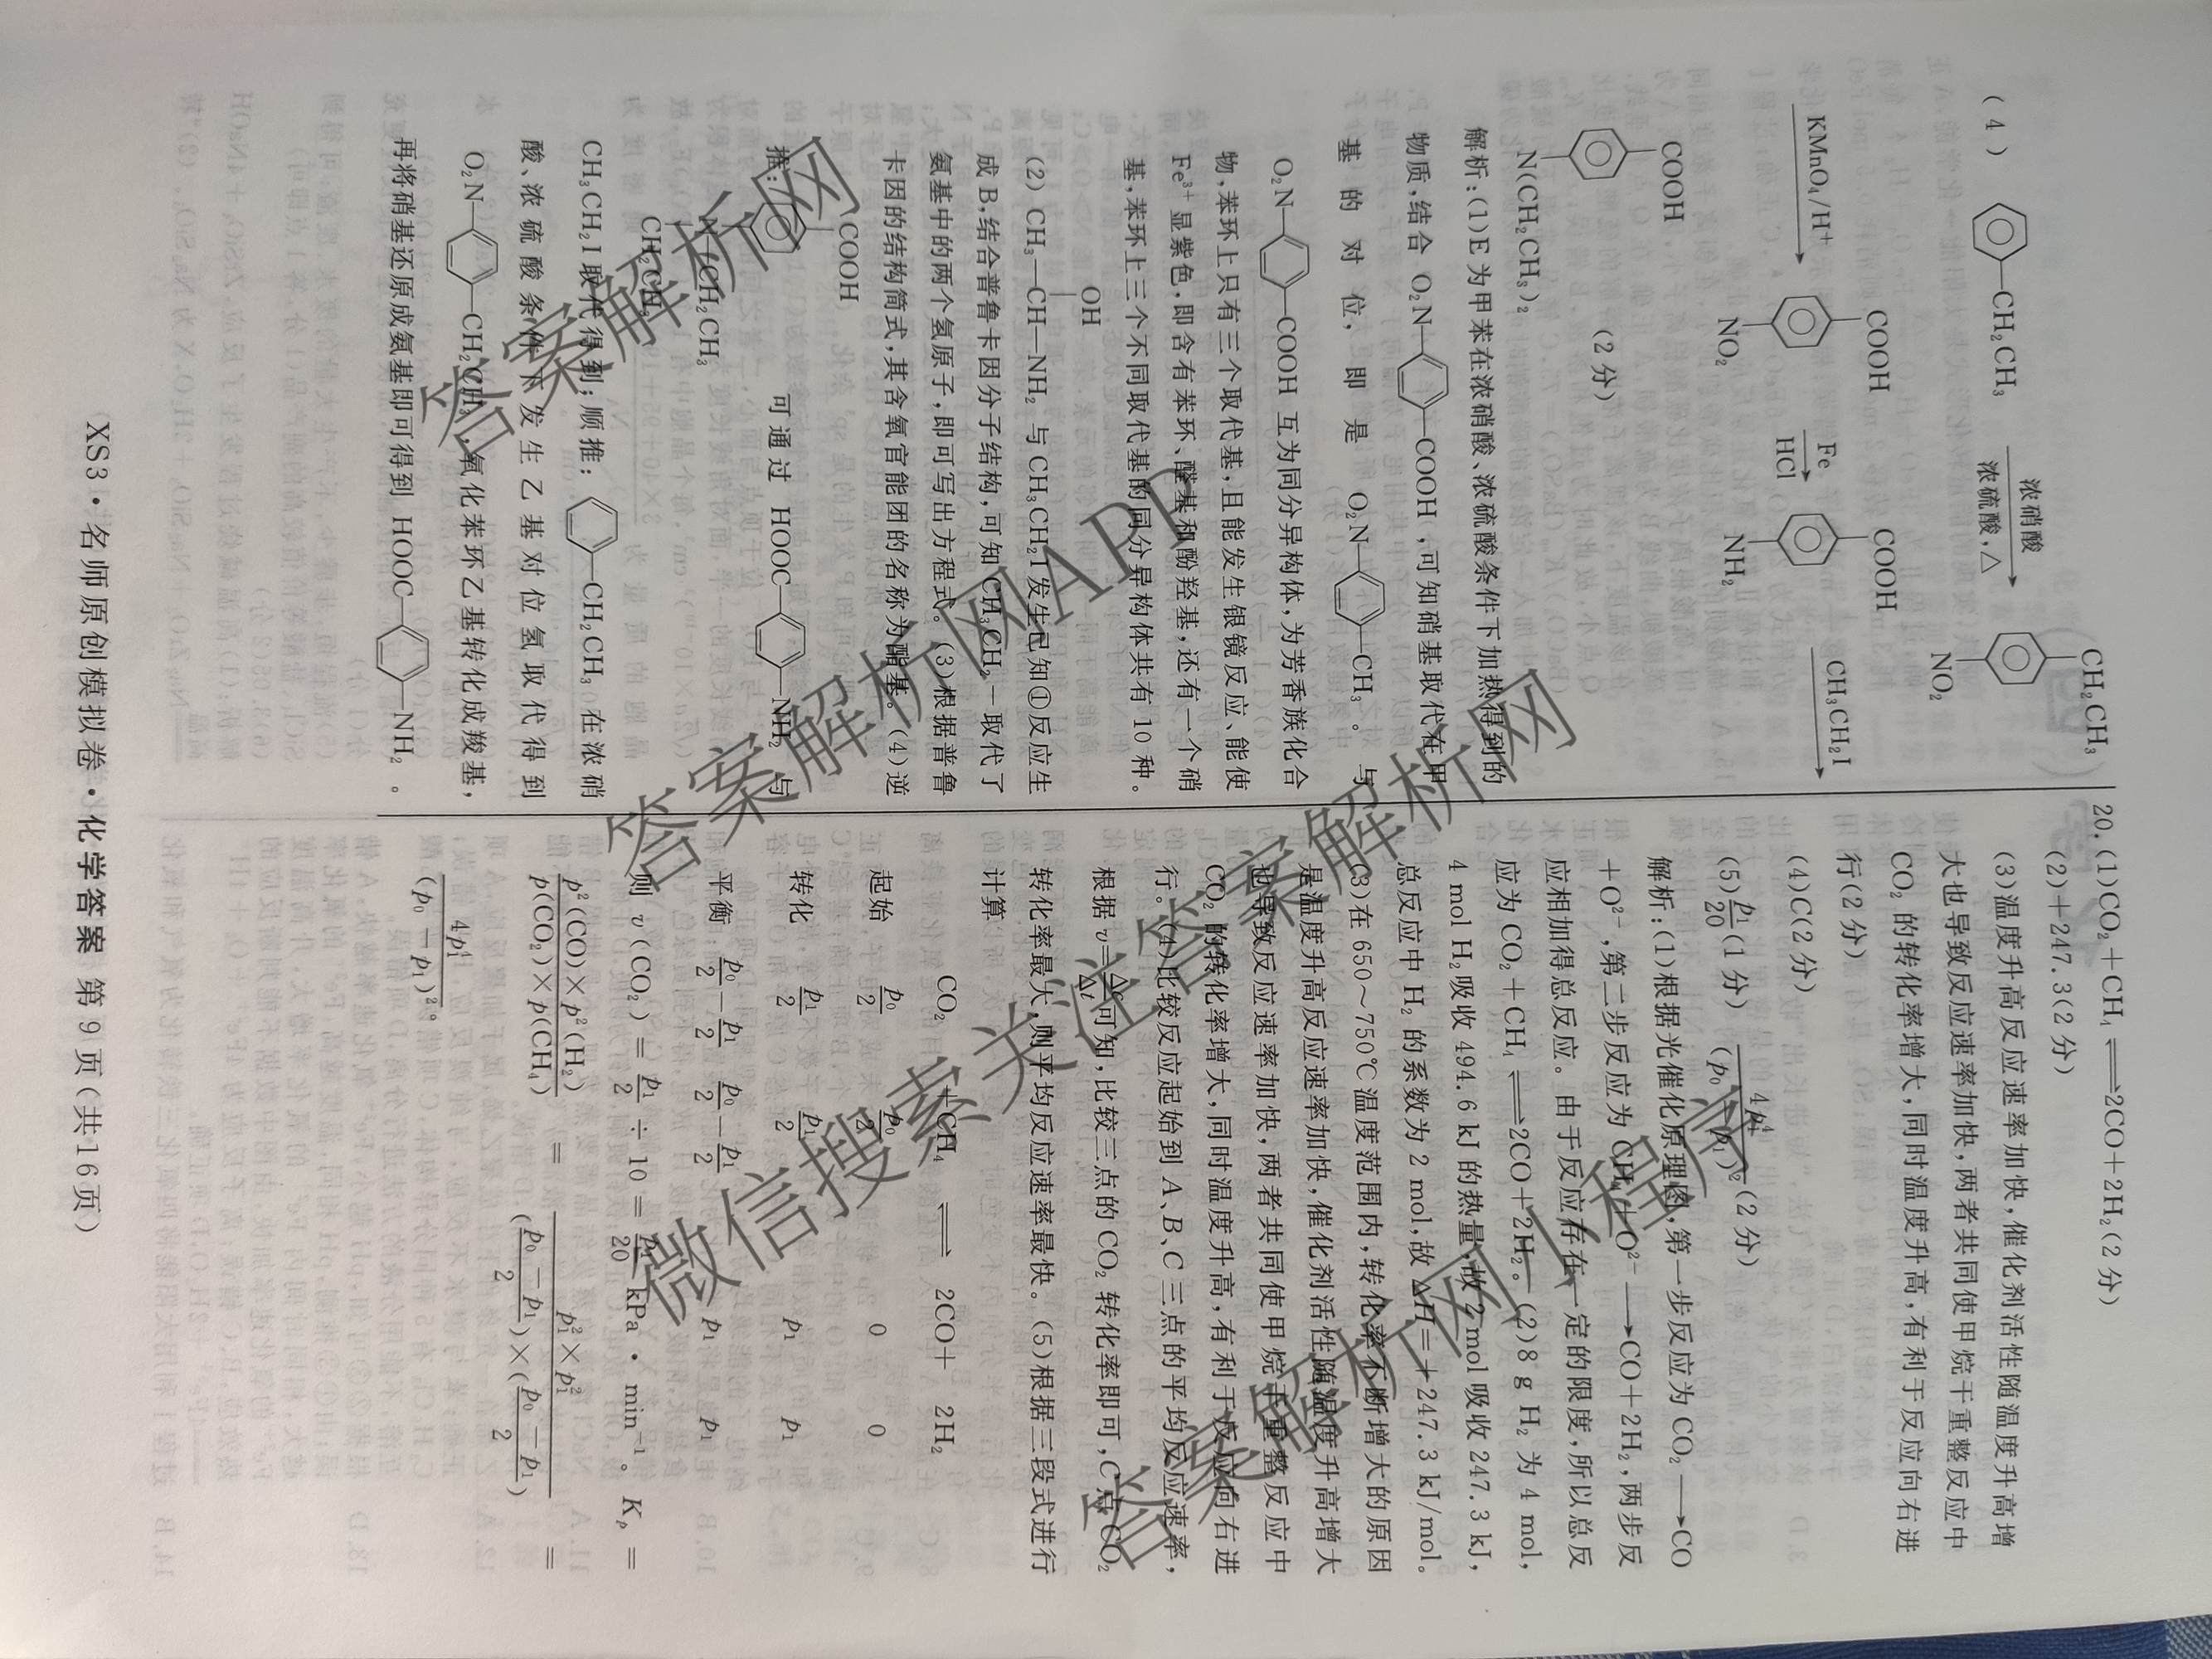 (4) CH₂CH₃ 浓硝酸 浓硫酸,△ CH₂CH₃ NO₂
KMnO₄/H⁺ COOH NO₂ Fe HCl COOH NH₂ CH₃CH₂I
COOH N(CH₂CH₃)₂ (2分)
解析:(1)E为甲苯在浓硝酸、浓硫酸条件下加热得到的
物质,结合 O₂N—COOH ,可知硝基取代在甲
基的对位,即是 O₂N—CH₃ 。与
O₂N—COOH 互为同分异构体,为芳香族化合
物,苯环上只有三个取代基,且能发生银镜反应、能使
Fe³⁺显紫色,即含有苯环、醛基和酚羟基,还有一个硝
基,苯环上三个不同取代基的同分异构体共有10种。
OH
(2) CH₃—CH—NH₂ 与CH₃CH₂I发生已知①反应生
成B,结合普鲁卡因分子结构,可知CH₃CH₂—取代了
氨基中的两个氢原子,即可写出方程式。(3)根据普鲁
卡因的结构简式,其含氧官能团的名称为酯基。(4)逆
推: COOH N—CH₂CH₃ CH₂CH₃ 可通过 HOOC—NH₂ 与
CH₃CH₂I取代得到;顺推: —CH₂CH₃ 在浓硝
酸、浓硫酸条件下发生乙基对位氢取代得到
O₂N—CH₂CH₃,氧化苯环乙基转化成羧基,
再将硝基还原成氨基即可得到 HOOC—NH₂ 。
20.(1)CO₂+CH₄⇌2CO+2H₂(2分)
(2)+247.3(2分)
(3)温度升高反应速率加快,催化剂活性随温度升高增
大也导致反应速率加快,两者共同使甲烷干重整反应中
CO₂的转化率增大,同时温度升高,有利于反应向右进
行(2分)
(4)C(2分)
(5)p₁/20(1分) 4p₁⁴/(p₀−p₁)²(2分)
解析:(1)根据光催化原理图,第一步反应为CO₂⟶CO
+O²⁻,第二步反应为CH₄+O²⁻⟶CO+2H₂,两步反
应相加得总反应。由于反应存在一定的限度,所以总反
应为CO₂+CH₄⇌2CO+2H₂。(2)8 g H₂为4 mol,
4 mol H₂吸收494.6 kJ的热量,故2 mol吸收247.3 kJ,
总反应中H₂的系数为2 mol,故ΔH=+247.3 kJ/mol。
(3)在650~750℃温度范围内,转化率不断增大的原因
是温度升高反应速率加快,催化剂活性随温度升高增大
也导致反应速率加快,两者共同使甲烷干重整反应中
CO₂的转化率增大,同时温度升高,有利于反应向右进
行。(4)比较反应起始到A、B、C三点的平均反应速率,
根据v=Δc/Δt可知,比较三点的CO₂转化率即可,C点CO₂
转化率最大,则平均反应速率最快。(5)根据三段式进行
计算
CO₂ + CH₄ ⇌ 2CO + 2H₂
起始 p₀/2 p₀/2 0 0
转化 p₁/2 p₁/2 p₁ p₁
平衡: p₀/2−p₁/2 p₀/2−p₁/2 p₁ p₁
则 v(CO₂)=p₁/2÷10=p₁/20 kPa·min⁻¹。Kₚ=
p²(CO)×p²(H₂)/p(CO₂)×p(CH₄) = p₁²×p₁²/((p₀−p₁)/2)×((p₀−p₁)/2) =
4p₁⁴/(p₀−p₁)²。
XS3·名师原创模拟卷·化学答案 第9页(共16页)
答案解析网
答案解析网APP
微信搜索关注答案解析网
答案解析网小程序